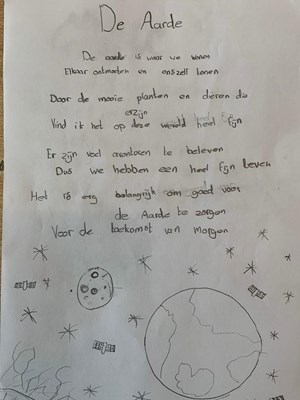 De Aarde
De aarde is waar we wonen
Elkaar ontmoeten en onszelf tonen
Door de mooie planten en dieren die
erzijn
Vind ik het op deze wereld heel fijn
Er zijn veel avonturen te beleven
Dus we hebben een heel fijn leven
Het is erg belangrijk om goed voor
de Aarde te zorgen
Voor de toekomst van morgen